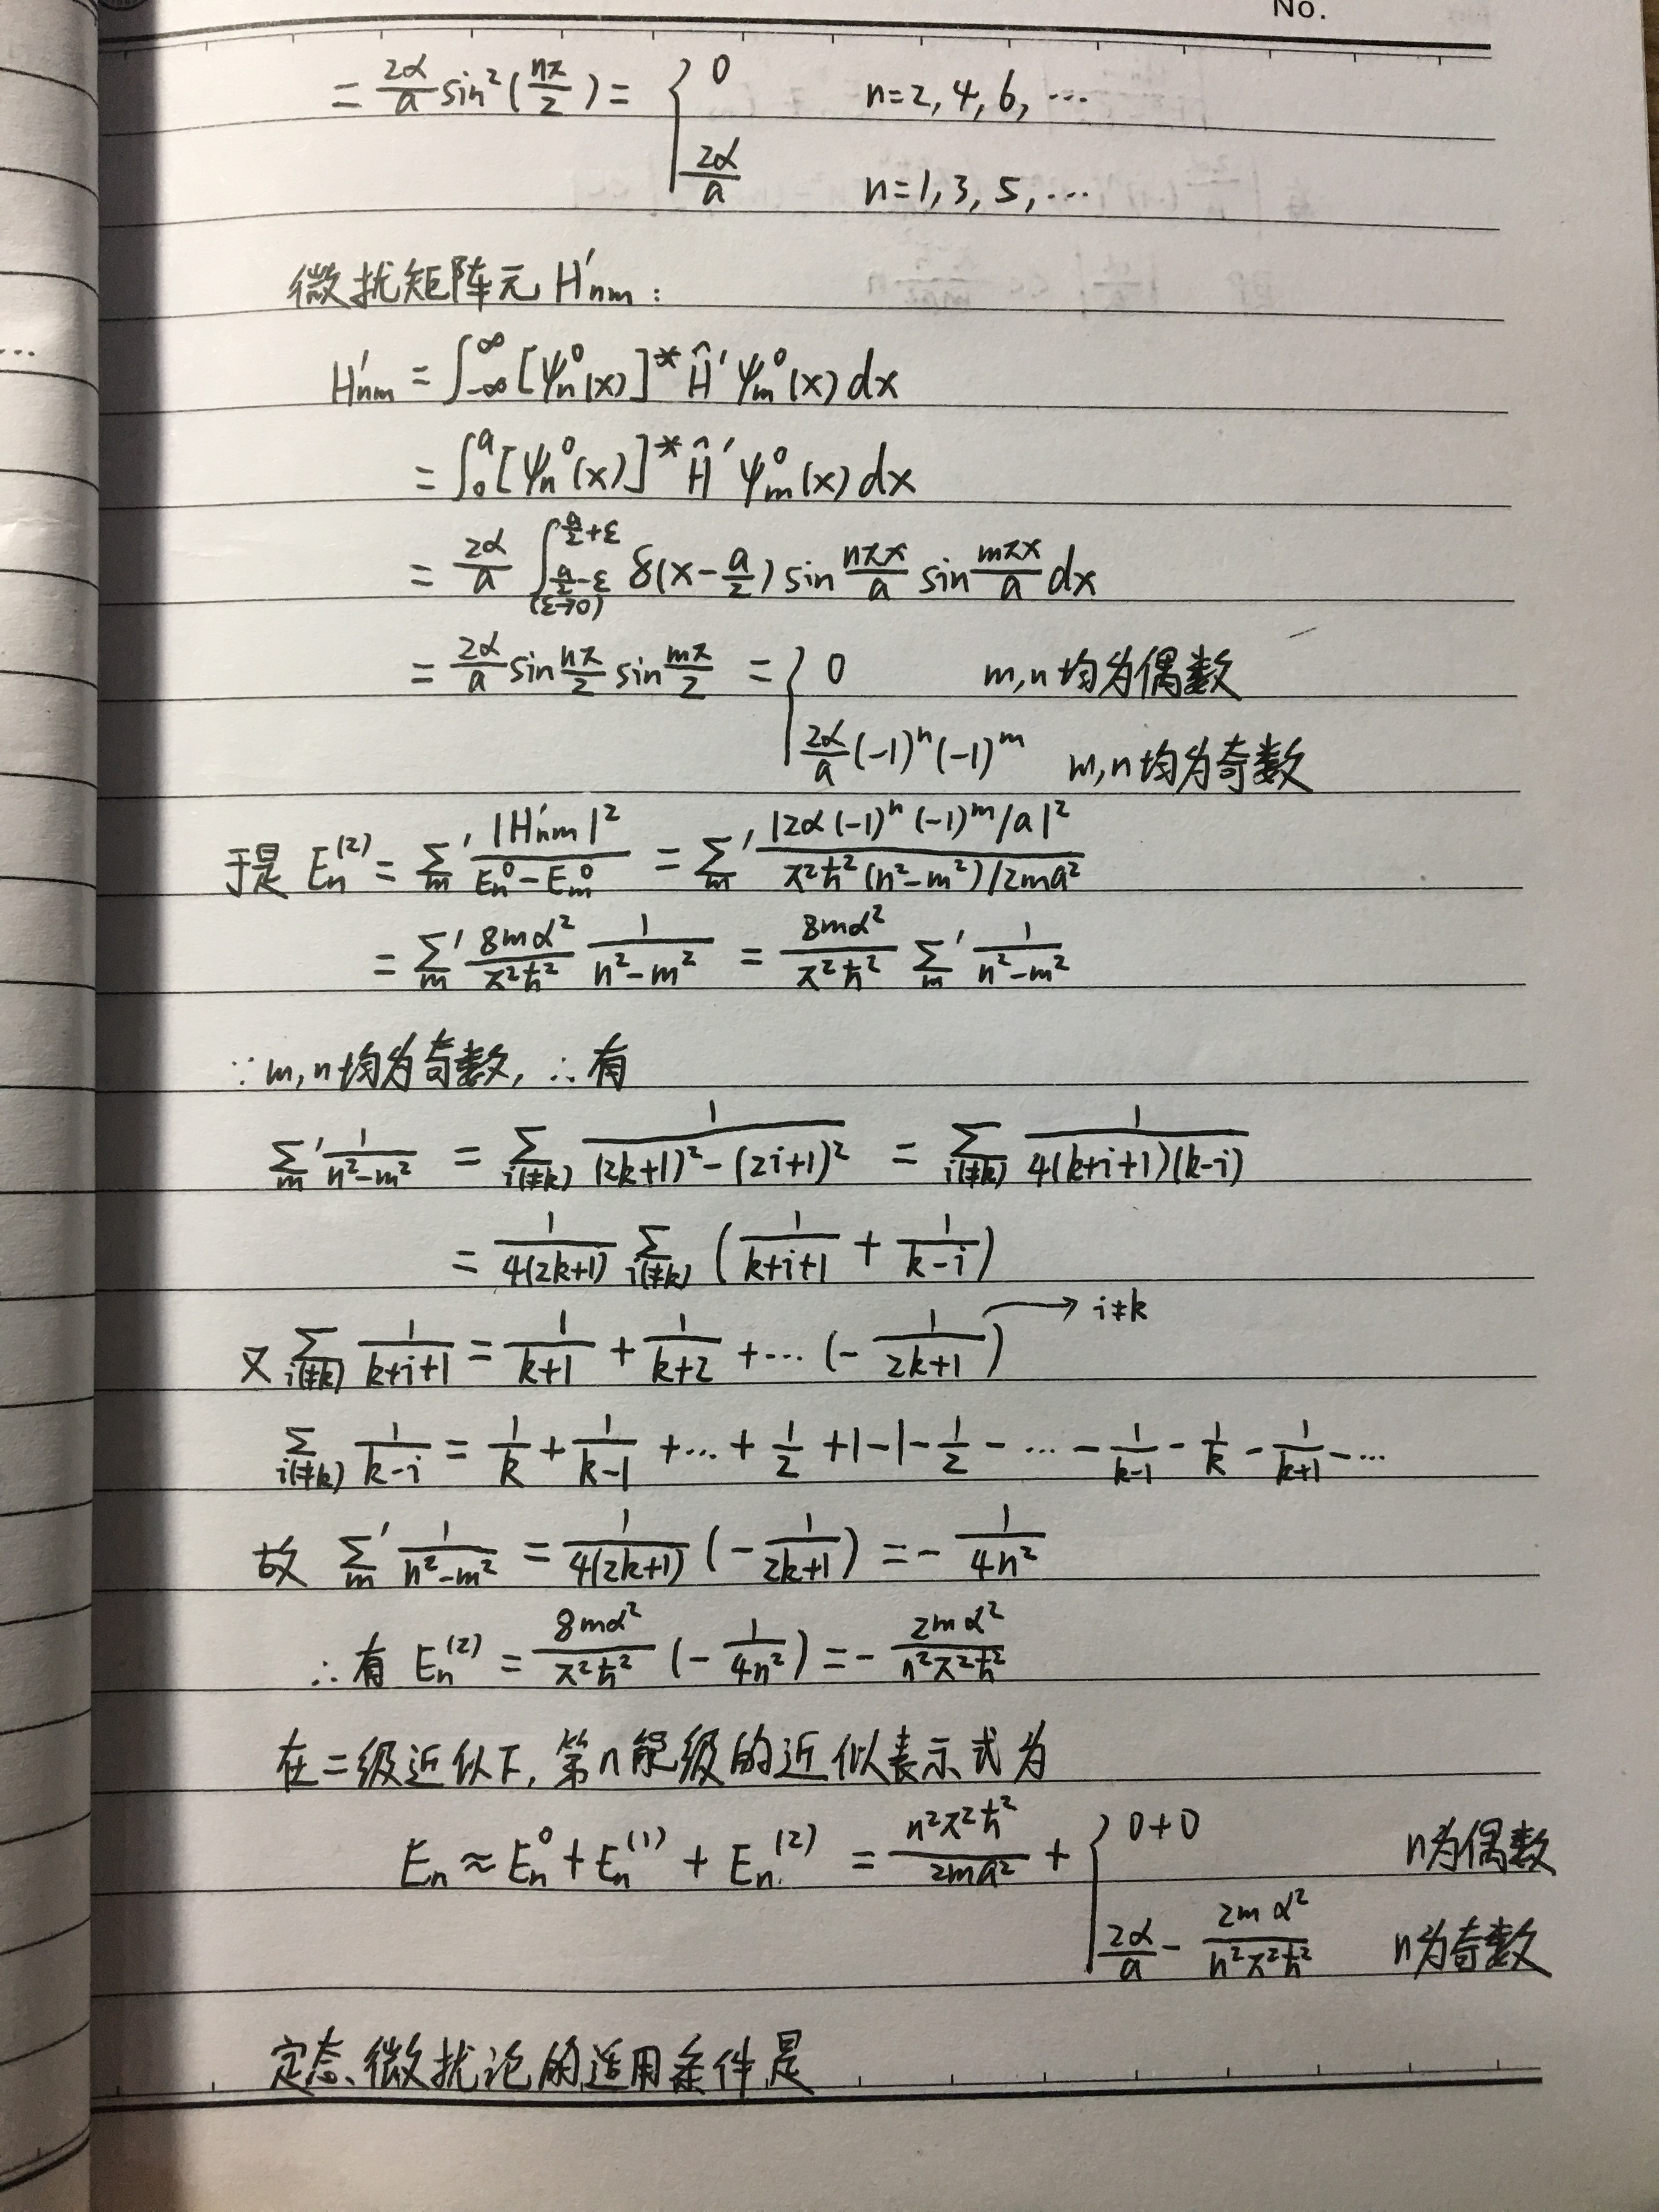 No.
= 2α/a sin²(nπ/2) = { 0 n=2, 4, 6, ⋯
2α/a n=1, 3, 5, ⋯
微扰矩阵元 H'nm :
H'nm = ∫_{-∞}^{∞} [ψn⁰(x)]* Ĥ' ψm⁰(x) dx
= ∫_0^a [ψn⁰(x)]* Ĥ' ψm⁰(x) dx
= 2α/a ∫_{a/2-ε (ε→0)}^{a/2+ε} δ(x-a/2) sin nπx/a sin mπx/a dx
= 2α/a sin nπ/2 sin mπ/2 = { 0 m,n 均为偶数
2α/a (-1)ⁿ(-1)ᵐ m,n 均为奇数
于是 En⁽²⁾ = Σ'_m |H'nm|²/(En⁰-Em⁰) = Σ'_m |2α(-1)ⁿ(-1)ᵐ/a|² / (π²ħ²(n²-m²)/2ma²)
= Σ'_m 8mα²/π²ħ² 1/(n²-m²) = 8mα²/π²ħ² Σ'_m 1/(n²-m²)
∵ m,n 均为奇数, ∴ 有
Σ'_m 1/(n²-m²) = Σ_{i(≠k)} 1/((2k+1)²-(2i+1)²) = Σ_{i(≠k)} 1/(4(k+i+1)(k-i))
= 1/(4(2k+1)) Σ_{i(≠k)} (1/(k+i+1) + 1/(k-i))
又 Σ_{i(≠k)} 1/(k+i+1) = 1/(k+1) + 1/(k+2) + ⋯ (-1/(2k+1)) → i≠k
Σ_{i(≠k)} 1/(k-i) = 1/k + 1/(k-1) + ⋯ + 1/2 + 1 - 1 - 1/2 - ⋯ - 1/(k-1) - 1/k - 1/(k+1) - ⋯
故 Σ'_m 1/(n²-m²) = 1/(4(2k+1)) (-1/(2k+1)) = - 1/4n²
∴ 有 En⁽²⁾ = 8mα²/π²ħ² (-1/4n²) = - 2mα²/n²π²ħ²
在二级近似下, 第n能级的近似表示式为
En ≈ En⁰ + En⁽¹⁾ + En⁽²⁾ = n²π²ħ²/2ma² + { 0+0 n为偶数
2α/a - 2mα²/n²π²ħ² n为奇数
定态微扰论的适用条件是